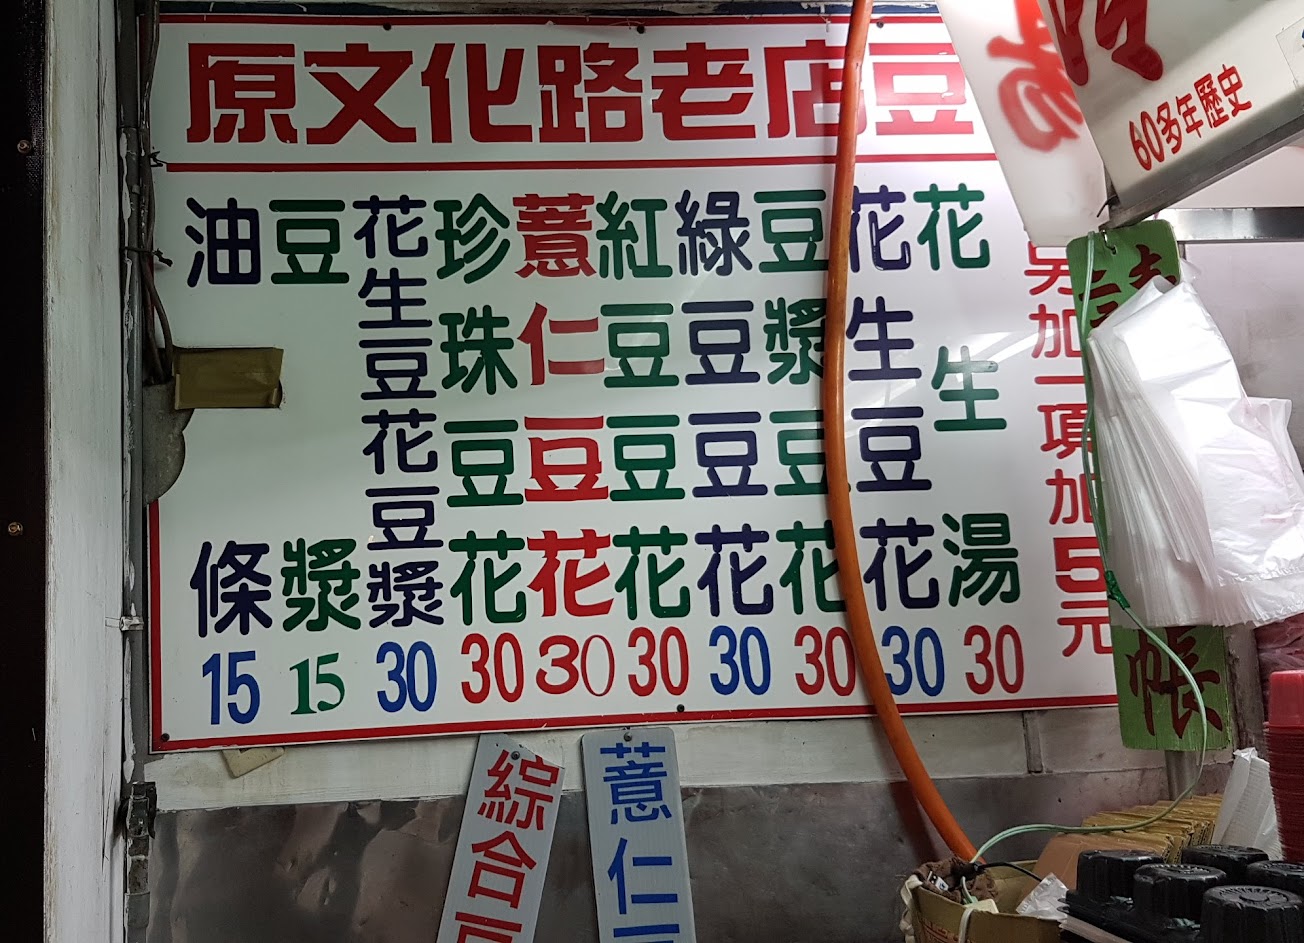 原文化路老店豆
60多年歷史
另加一項加5元
花生湯 30
花生豆花 30
豆漿豆花 30
綠豆豆花 30
紅豆豆花 30
薏仁豆花 30
珍珠豆花 30
花生豆花豆漿 30
豆漿 15
油條 15
綜合
薏仁
帳